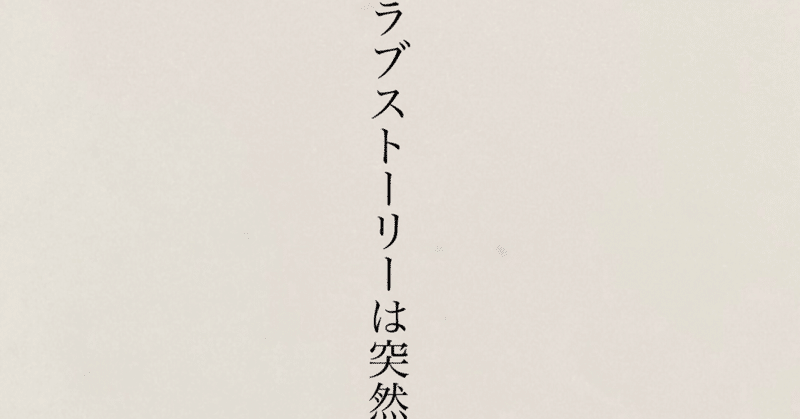 ラブストーリーは突然